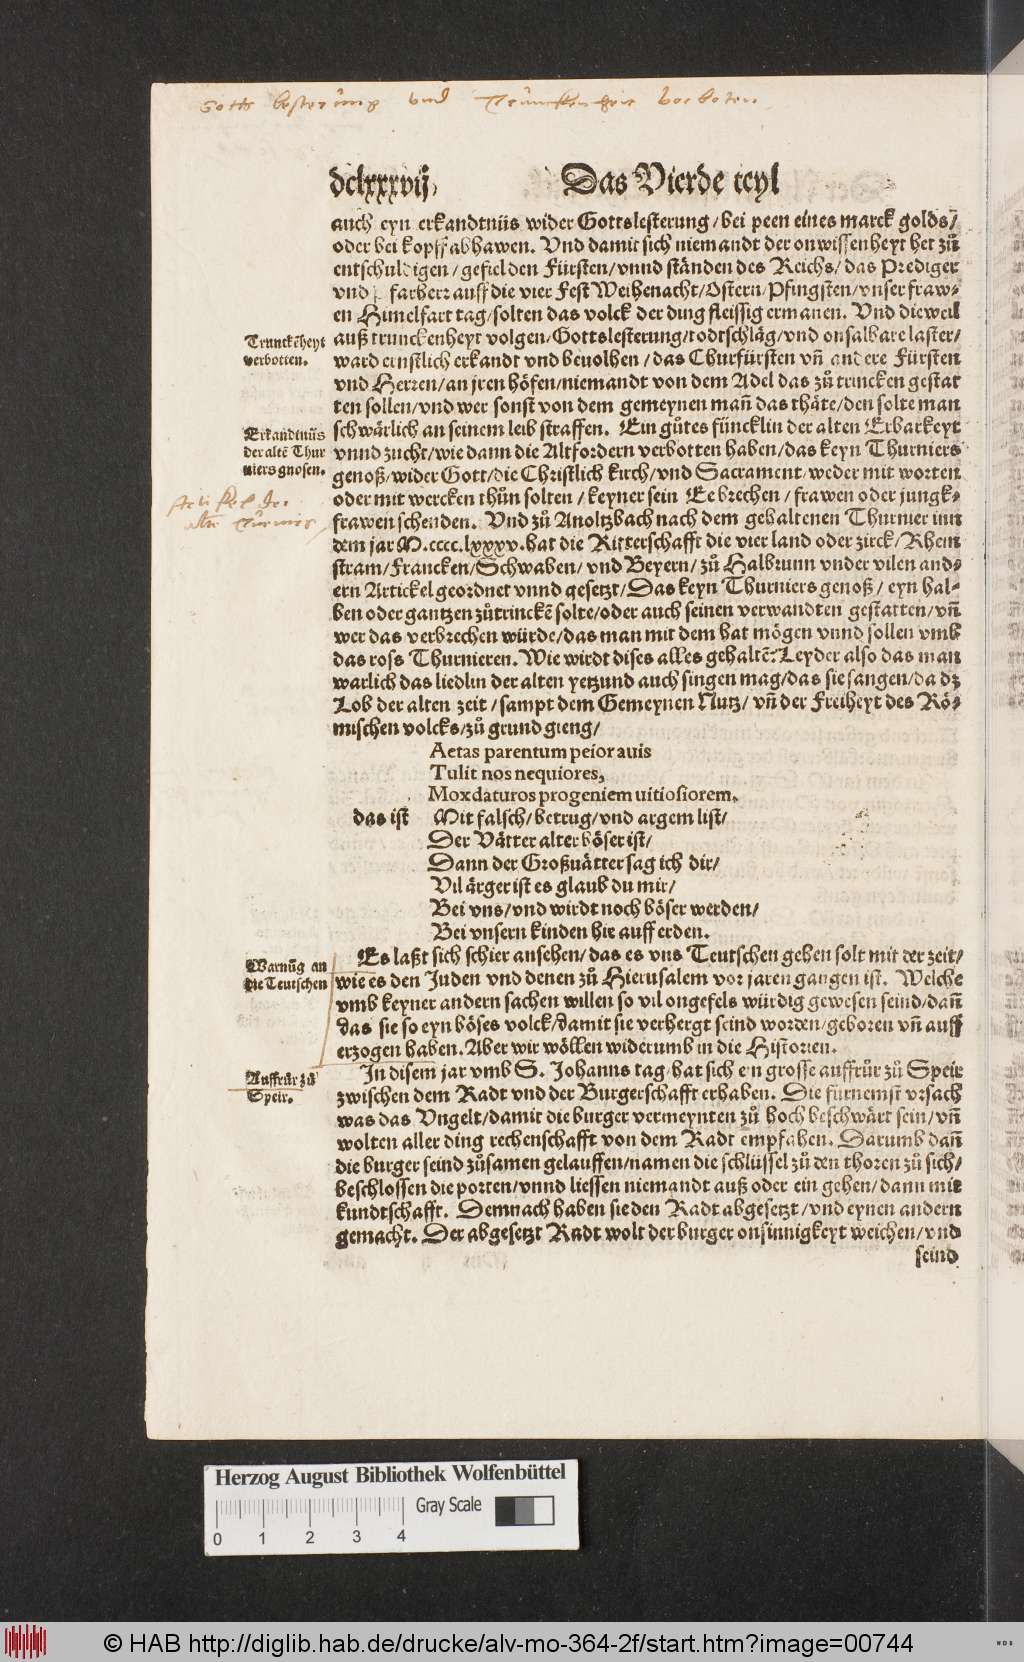 Gotts lesterung und Trunckenheit verboten
dclxxxvij,
Das Vierde teyl
auch eyn erkandtnüs wider Gottslesterung/bei peen eines marck golds/
oder bei kopff abhawen. Vnd damit sich niemandt der onwissenheyt het zů
entschuldigen/gefiel den Fürsten/vnnd ständen des Reichs/das Prediger
vnd Pfarherr auff die vier Fest Weihenacht/Ostern/Pfingsten/vnser fraw-
en Himelfart tag/solten das volck der ding fleissig ermanen. Vnd dieweil
Trunckēheyt
verbotten.
auß trunckenheyt volgen/Gottslesterung/todtschläg/vnd onsalbare laster/
ward ernstlich erkandt vnd beuolhen/das Churfürsten vñ andere Fürsten
vnd Herren/an jren höfen/niemandt von dem Adel das zů trincken gestat
ten sollen/vnd wer sonst von dem gemeynen mañ das thäte/den solte man
Erkandtnüs
der altē Thur
niers gnosen.
schwärlich an seinem leib straffen. Ein gůtes füncklin der alten Erbarkeyt
vnnd zucht/wie dann die Altfordern verbotten haben/das keyn Thurniers
genoß/wider Gott/die Christlich kirch/vnd Sacrament/weder mit worten
oder mit wercken thůn solten/keyner sein Eebrechen/frawen oder jungk-
Artickel der
alten Turnir
frawen schenden. Vnd zů Anoltzbach nach dem gehaltenen Thurnier inn
dem jar M.cccc.lxxxv.hat die Ritterschafft die vier land oder zirck/Rhein
stram/Francken/Schwaben/vnd Beyern/zů Halbrunn vnder vilen and-
ern Artickel geordnet vnnd gesetzt/Das keyn Thurniers genoß/eyn hal-
ben oder gantzen zůtrinckē solte/oder auch seinen verwandten gestatten/vñ
wer das verbrechen würde/das man mit dem hat mögen vnnd sollen vmb
das ross Thurnieren. Wie wirdt dises alles gehaltē: Leyder also das man
warlich das liedlin der alten yetzund auch singen mag/das sie sangen/da dz
Lob der alten zeit/sampt dem Gemeynen Nutz/vñ der Freiheyt des Rö-
mischen volcks/zů grund gieng/
Aetas parentum peior auis
Tulit nos nequiores,
Mox daturos progeniem uitiosiorem.
das ist Mit falsch/betrug/vnd argem list/
Der Vätter alter böser ist/
Dann der Großuätter sag ich dir/
Vil ärger ist es glaub du mir/
Bei vns/vnd wirdt noch böser werden/
Bei vnsern kinden hie auff erden.
Warnūg an
die Teutschen
Es laßt sich schier ansehen/das es vns Teutschen gehen solt mit der zeit/
wie es den Juden vnd denen zů Hierusalem vor jaren gangen ist. Welche
vmb keyner andern sachen willen so vil ongefels würdig gewesen seind/dañ
das sie so eyn böses volck/damit sie verhergt seind worden/geboren vñ auff
erzogen haben. Aber wir wöllen widerumb in die Historien.
Auffrůr zů
Speir.
In disem jar vmb S. Johanns tag/hat sich ein grosse auffrůr zů Speir
zwischen dem Radt vnd der Burgerschafft erhaben. Die fürnemst vrsach
was das Vngelt/damit die burger vermeynten zů hoch beschwärt sein/vñ
wolten aller ding rechenschafft von dem Radt empfahen. Darumb dañ
die burger seind zůsamen gelauffen/namen die schlüssel zů den thoren zů sich/
beschlossen die porten/vnnd liessen niemandt auß oder ein gehen/dann mit
kundtschafft. Demnach haben sie den Radt abgesetzt/vnd eynen andern
gemacht. Der abgesetzt Radt wolt der burger onsinnigkeyt weichen/vnd
seind
Herzog August Bibliothek Wolfenbüttel
Gray Scale
0 1 2 3 4
© HAB http://diglib.hab.de/drucke/alv-mo-364-2f/start.htm?image=00744